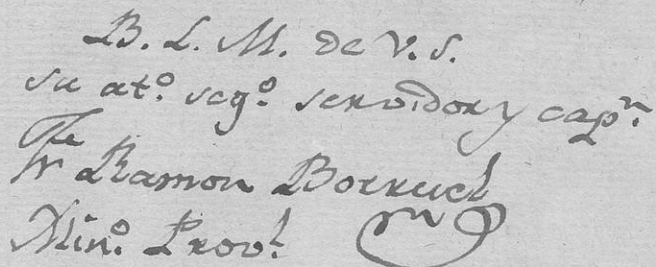 B. L. M. de V. S.
su at.º seg.º servidor y cap.n
Fr Ramon Borruel
Min.º Prov.l